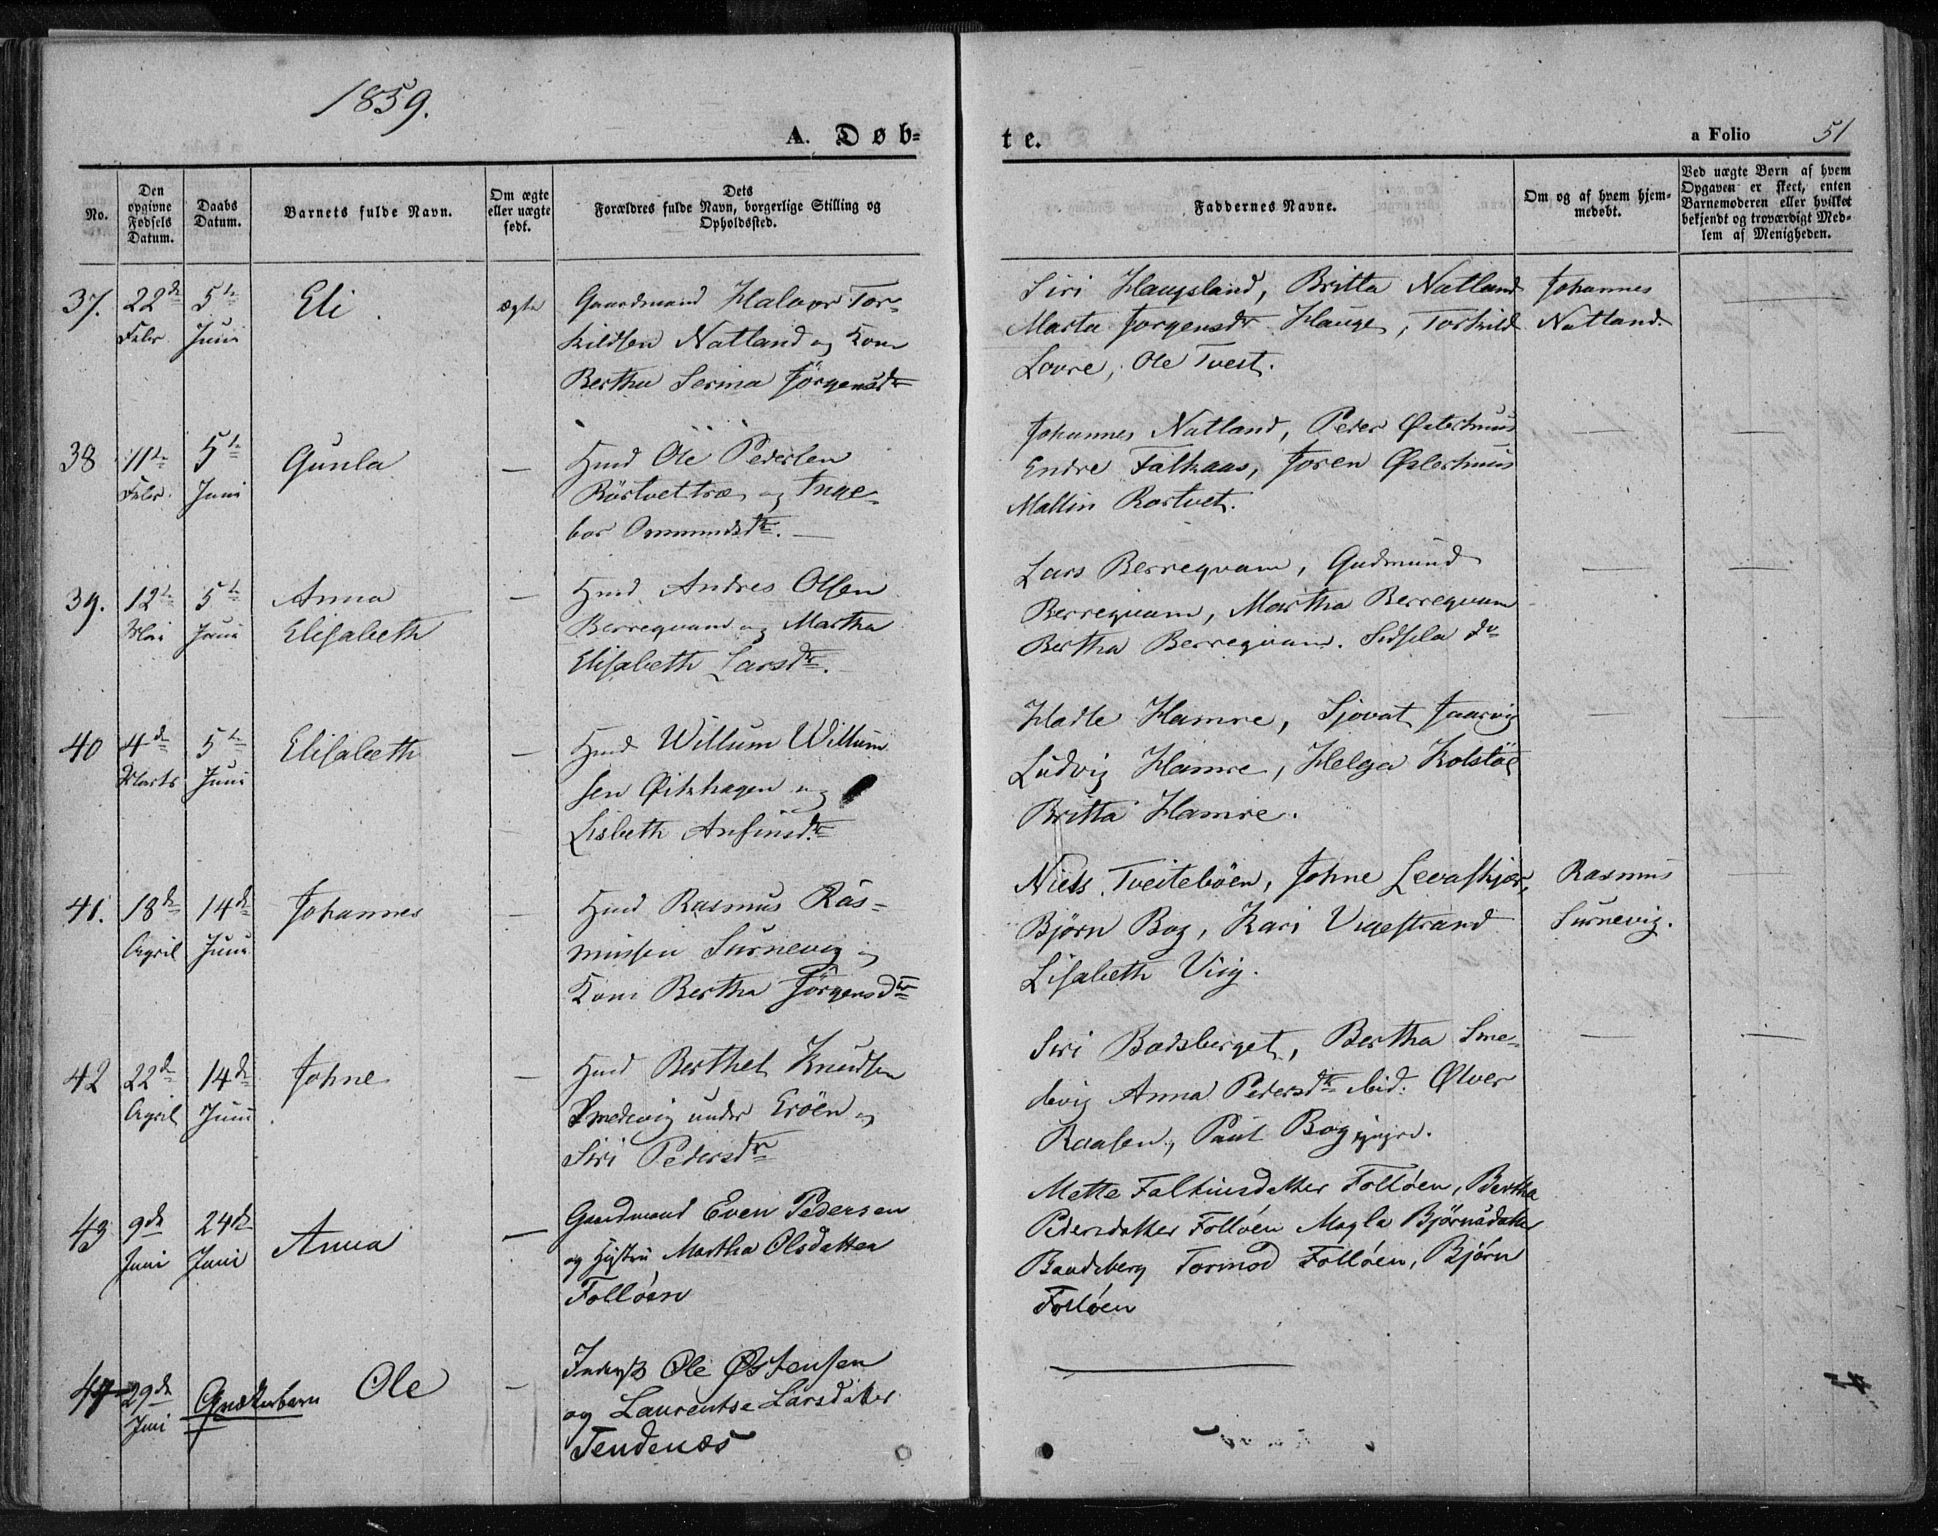 1859.
A. Døb-
te.
a Folio 51
No.
Den opgivne Fødsels Datum.
Daabs Datum.
Barnets fulde Navn.
Om ægte eller uægte født.
Dets Forældres fulde Navn, borgerlige Stilling og Opholdssted.
Faddernes Navne.
Om og af hvem hjem-
medøbt.
Ved uægte Børn af hvem
Opgaven er skeet, enten
Barnemoderen eller hvilket
bekjendt og troværdigt Med-
lem af Menigheden.
37. 22de Febr 5te Juni Eli ægte
Gaardmand Halvor Tor-
kildsen Natland og Kone
Bertha Serina Jörgensdtr
Siri Haugsland, Britta Natland
Marta Jorgensdtr Hauge, Torkild
Lovre, Ole Tvest.
Johannes
Natland.
38 11te Febr. 5te Juni Gunla —
Hmd Ole Pedersen
Börtvettræ og Inge-
bor Ommundsdtr. —
Johannes Natland, Peder Østerhuus
Endre Falkaas, Joren Østerhuus
Mallin Rortvet.
39. 12te Mai 5te Juni Anna
Elisabeth —
Hmd Andres Olsen
Berreqvam og Martha
Elisabeth Larsdtr.
Lars Berreqvam, Gudmund
Berreqvam, Martha Berreqvam
Bertha Berreqvam. Sidsela do
40 4de Marts 5te Juni Elisabeth —
Hmd Willum Willum-
sen Østhagen og
Lisbeth Ansinsdtr
Hadle Hamre, Sjovat Jaarvig
Ludvig Hamre, Helga Kolstöe
Britta Hamre.
41. 18de April 14de Juni Johannes —
Hmd Rasmus Ras-
mussen Surnevig og
Kone Bertha Jörgensdtr
Niels Tveiteböen, Johne Levaskjær,
Bjørn Bog, Kari Vigestrand
Lisabeth Viig.
Rasmus
Surnevig.
42 22de April 14de Juni Johne —
Hmd Berthel Knudsen
Smedevig under Eröen og
Siri Pedersdtr
Siri Bodsberget, Bertha Sme-
devig Anna Pedersdtr ibid. Ølver
Raasen, Paul Bog
43 9de Juni 24de Juni Anna —
Gaardmand Even Pedersen
og Hustru Martha Olsdatter
Folløen
Mette Falkinsdatter Folløen, Bertha
Pedersdatter Folløen Magla Bjørnsdatter
Bandsberg Tormod Folløen, Bjørn
Folløen
44 29de Juni Ole —
Inderst Ole Østensen
og Laurentse Larsdatter
Tendenæs